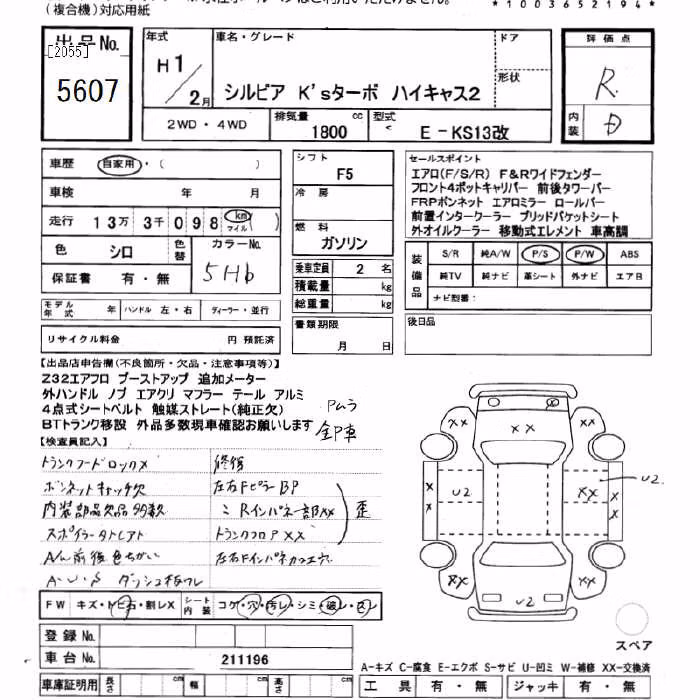 (複合機)対応用紙
*1003652194*
出品No.
[2055]
5607
年式
H1/2月
車名・グレード
シルビア K'sターボ ハイキャス2
ドア
形状
評価点
R
内装
D
2WD・4WD
排気量
1800 cc
型式
E-KS13改
車歴 自家用・( )
車検 年 月
走行 13万3千098 km マイル ( )
色 シロ
色替
カラーNo.
5Hb
保証書 有・無
モデル年式 年
ハンドル 左・右
ディーラー・並行
リサイクル料金 円 預託済
シフト
F5
冷房
燃料
ガソリン
乗車定員 2 名
積載量 kg
総重量 kg
書類期限
月 日
セールスポイント
エアロ(F/S/R) F&Rワイドフェンダー
フロント4ポットキャリパー 前後タワーバー
FRPボンネット エアロミラー ロールバー
前置インタークーラー ブリッドバケットシート
外オイルクーラー 移動式エレメント 車高調
装備品
S/R 純A/W P/S P/W ABS
純TV 純ナビ 革シート 外ナビ エアB
ナビ型番:
後日品
【出品店申告欄(不良箇所・欠品・注意事項等)】
Z32エアフロ ブーストアップ 追加メーター
外ハンドル ノブ エアクリ マフラー テール アルミ
4点式シートベルト 触媒ストレート(純正欠)
BTトランク移設 外品多数現車確認お願いします
Pムラ
全P車
【検査員記入】
トランクフードロックX
ボンネットキャッチ欠
内装部品欠品多数
スポイラータトレアト
A/W前後色ちがい
A・U・S ダッシュ板ワレ
修復
左右FピラーBP
〃 Rインパネ一部XX
トランクフロアXX
左右Fインパネカフェ穴
歪
FW キズ・トビ石・割レX
シート内装 コゲ・穴・汚レ・シミ・破レ・スレ
登録No.
車台No. 211196
車庫証明用 長さ cm 幅 cm 高さ cm
XX
XX
XX
U2
XX
U2
X
X
X
X
XX
XX
U2
スペア
A-キズ C-腐食 E-エクボ S-サビ U-凹ミ W-補修 XX-交換済
工具 有・無 ジャッキ 有・無